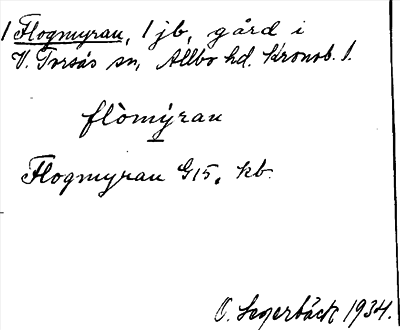 1 Flogmyrau, 1 jb, gård i
V. Torsås sn, Allbo hd. Kronob. l.
flòmýrau
Flogmyrau G15. kb.
O. Segerbäck 1934.